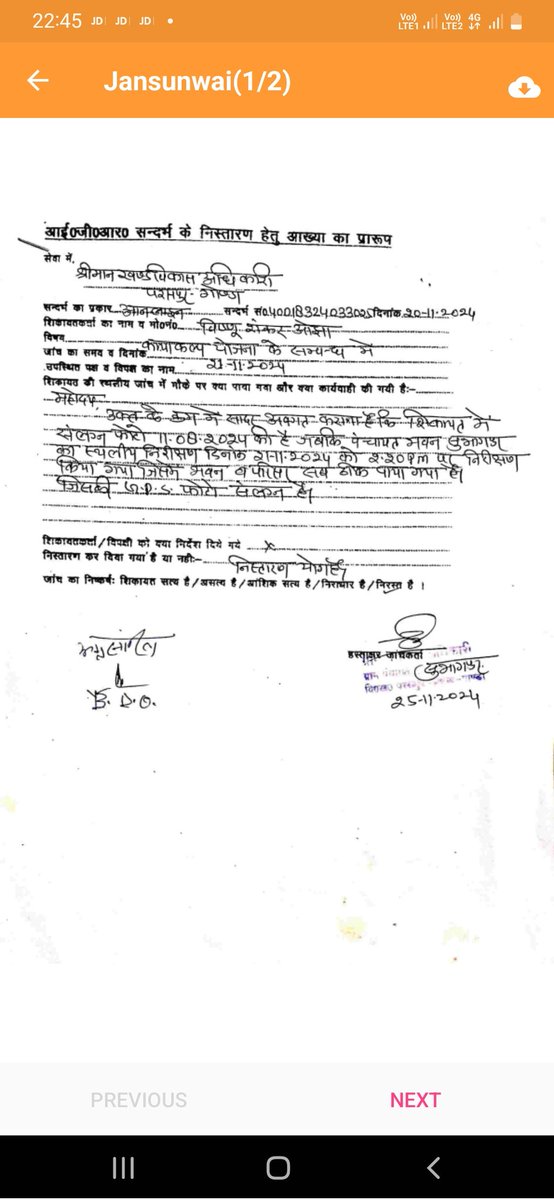 22:45 JD JD JD •
Vo)) LTE1 Vo)) LTE2 4G
Jansunwai(1/2)
आई०जी०आर० सन्दर्भ के निस्तारण हेतु आख्या का प्रारूप
सेवा में,
श्रीमान खण्ड विकास अधिकारी
सन्दर्भ का प्रकार ऑनलाइन सन्दर्भ सं० दिनांक 20-11-2024
शिकायतकर्ता का नाम व मो०नं० विष्णु शंकर ओझा
विषय कायाकल्प योजना के सम्बन्ध में
जांच का समय व दिनांक 21-11-2024
उपस्थित पक्ष व विपक्ष का नाम
शिकायत की स्थलीय जांच में मौके पर क्या पाया गया और क्या कार्यवाही की गयी है:-
महोदय,
उक्त के क्रम में सादर अवगत कराना है कि शिकायत में
संलग्न फोटो 11-08-2024 की है जबकि पंचायत भवन
का स्थलीय निरीक्षण दिनांक 21-11-2024 को 2:20 PM पर निरीक्षण
किया गया जिसमें भवन व सब ठीक पाया गया है।
जिसकी G.P.S. फोटो संलग्न है।
शिकायतकर्ता/विपक्षी को क्या निर्देश दिये गये x
निस्तारण कर दिया गया है या नहीं:- निस्तारण योग्य है,
जांच का निष्कर्ष: शिकायत सत्य है/असत्य है/आंशिक सत्य है/निराधार है/निरस्त है ।
हस्ताक्षर जांचकर्ता
B. D.O.
25-11-2024
PREVIOUS
NEXT